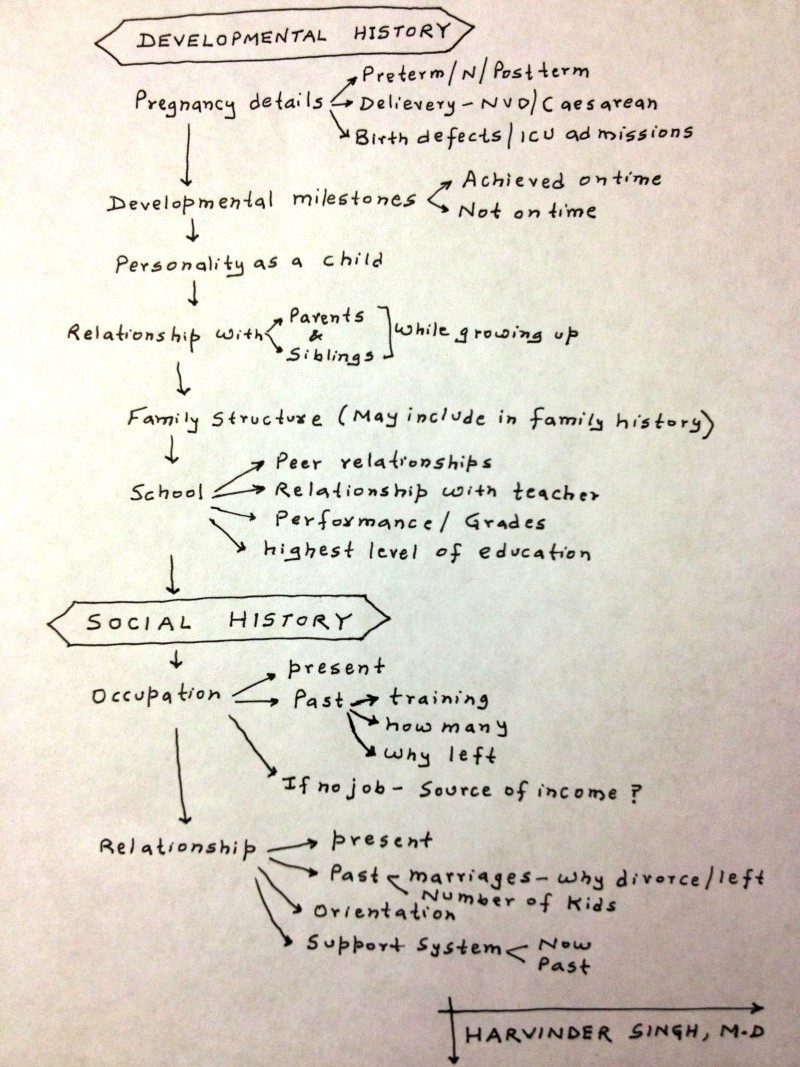 DEVELOPMENTAL HISTORY
Preterm/N/Post term
Pregnancy details
Delievery - NVD/Caesarean
Birth defects/ICU admissions
Achieved on time
Developmental milestones
Not on time
Personality as a child
Parents
Relationship with & while growing up
Siblings
Family Structure (May include in family history)
Peer relationships
School Relationship with teacher
Performance/Grades
highest level of education
SOCIAL HISTORY
present
Occupation Past training
how many
why left
If no job - Source of income ?
present
Relationship
Past marriages - why divorce/left
Number of Kids
Orientation
Support System Now
Past
HARVINDER SINGH, M.D